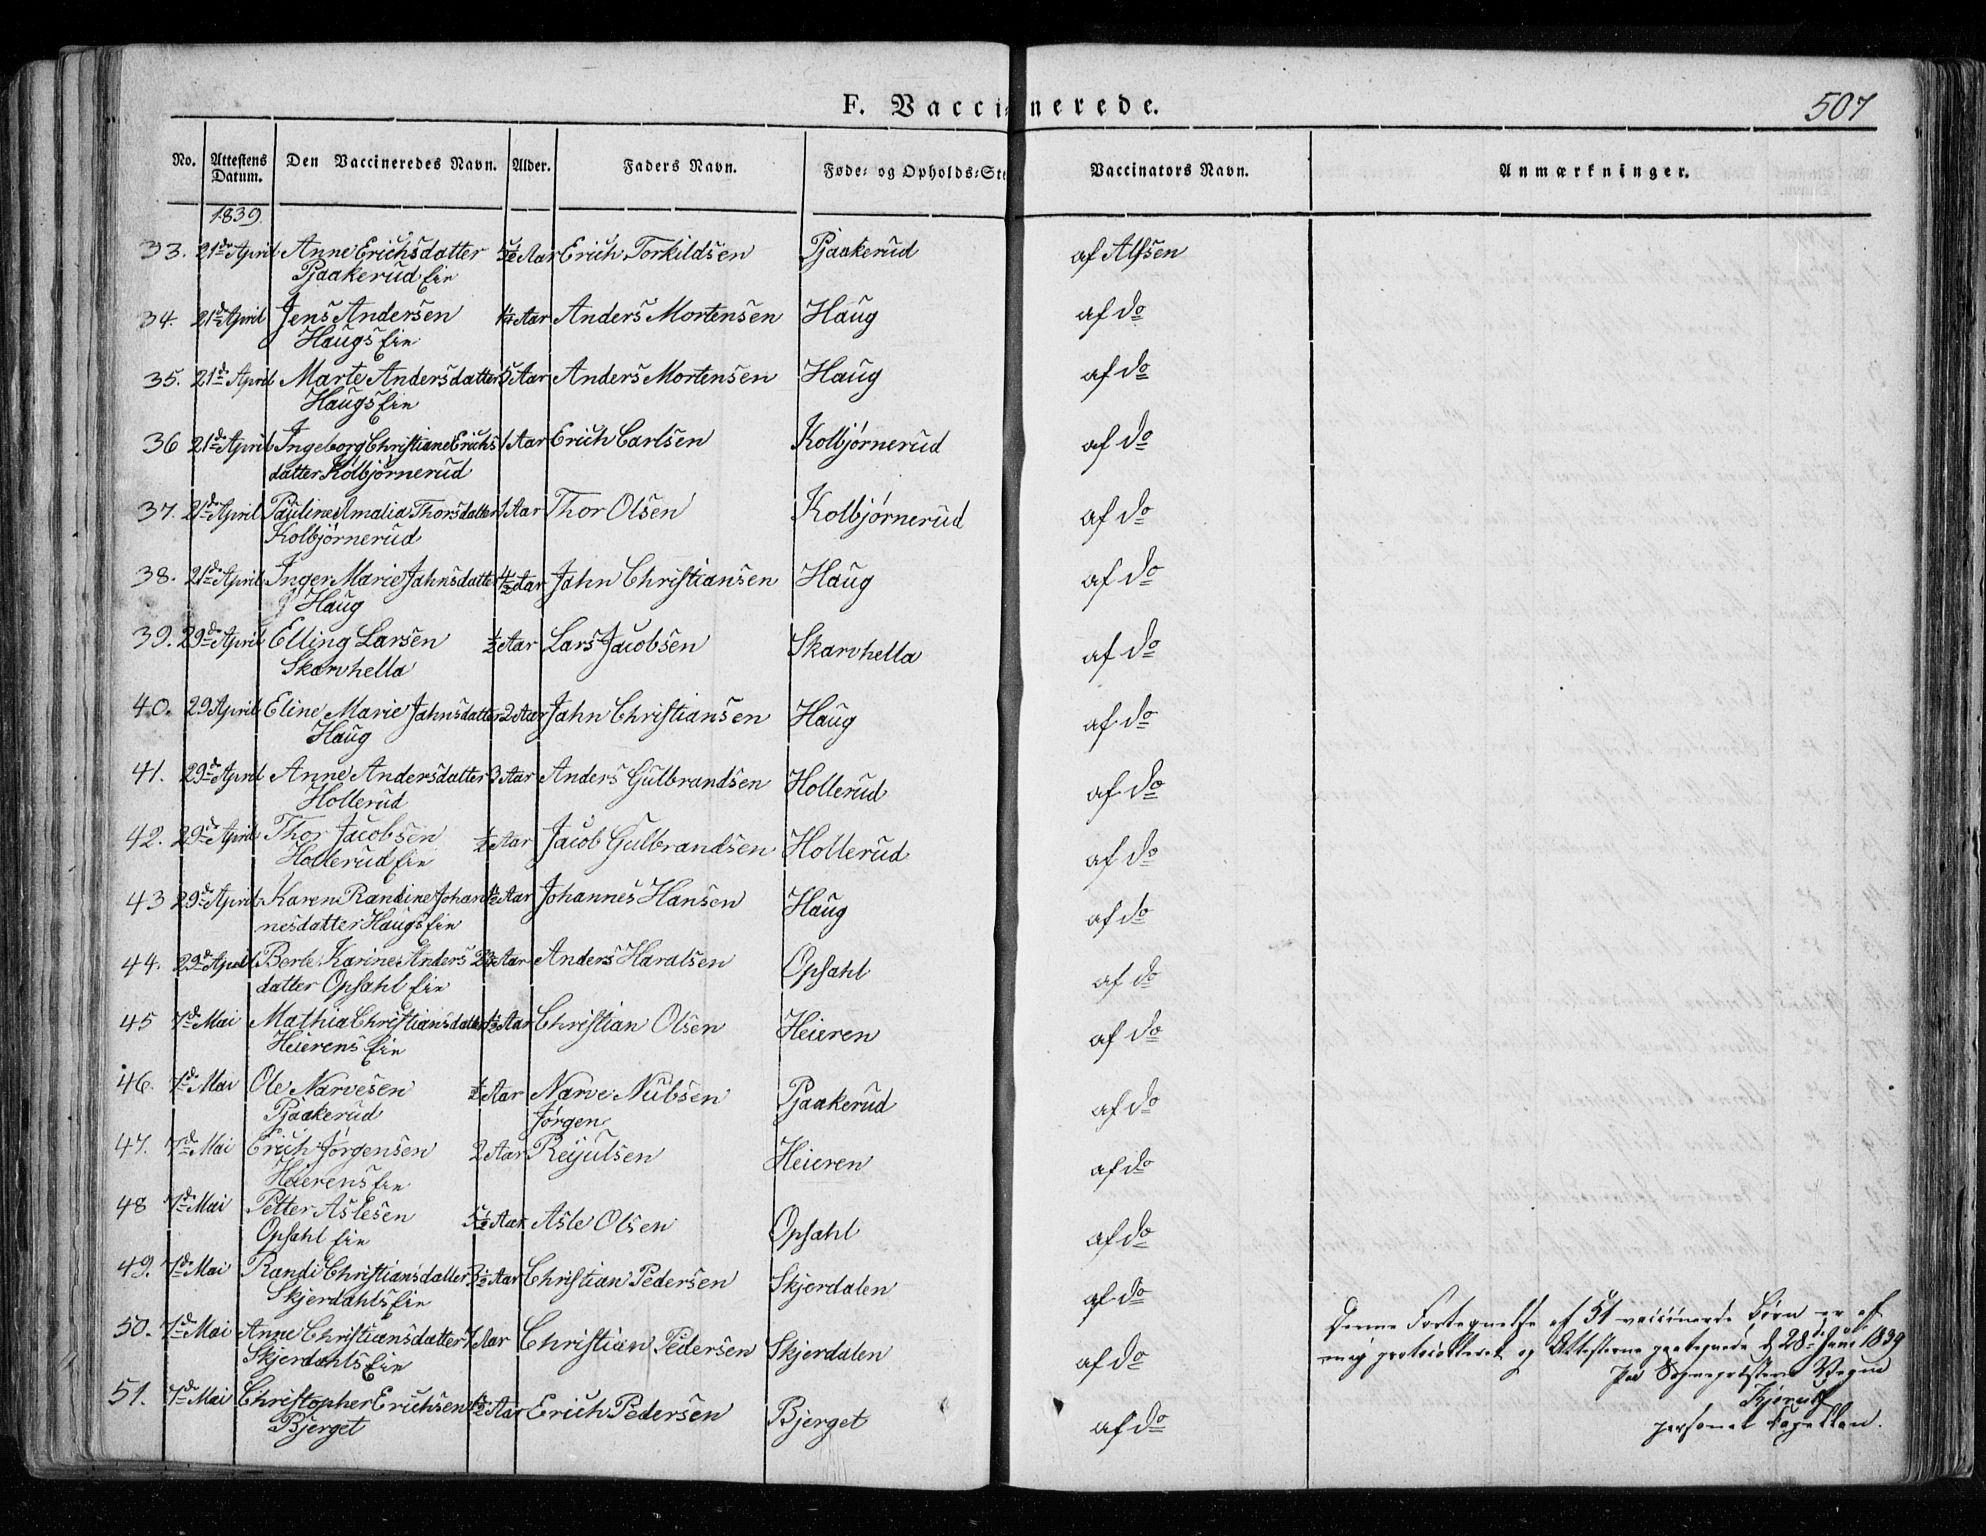 F. Vaccinerede.
507
No. Attestens Datum. Den Vaccineredes Navn. Alder. Faders Navn. Føde- og Opholds-Ste Vaccinators Navn. Anmærkninger.
1839.
33. 21de April Anne Erichsdatter 5½ Aar Erich Torkildsen Pjaakerud af Alfsen
Pjaakerud Eie
34. 21de April Jens Andersen Aar Anders Mortensen Haug af do
Haugs Eie
35. 21de April Marte Andersdatter 5 Aar Anders Mortensen Haug af do
Haugs Eie
36 21de April Ingeborg Christiane Erichs 1 Aar Erich Carlsen Kolbjørnerud af do
datter Kolbjørnerud
37. 21de April Pauline Amalia Thorsdatter 1 Aar Thor Olsen Kolbjørnerud af do
Kolbjørnerud
38. 21de April Inger Marie Jahnsdatter 4½ Aar Jahn Christiansen Haug af do
Haug
39. 29de April Elling Larsen ½ Aar Lars Jacobsen Skarvhella af do
Skarvhella
40. 29 April Eline Marie Jahnsdatter 2 Aar Jahn Christiansen Haug af do
Haug
41. 29de April Anne Andersdatter 3 Aar Anders Gulbrandsen Hollerud af do
Hollerud
42. 29de April Thor Jacobsen ½ Aar Jacob Gulbrandsen Hollerud af do
Hollerud Eie
43 29de April Karen Randine Johan 1½ Aar Johannes Hansen Haug af do
nesdatter Haugs Eie
44. 29de April Berte Karine Anders Aar Anders Haralsen Opsahl af do
datter Opsahl Eie
45 7de Mai Mathia Christiansdatter 1½ Aar Christian Olsen Heieren af do
Heierens Eie
46. 7de Mai Ole Narvesen ½ Aar Narve Nubsen Pjaakerud af do
Pjaakerud Jørgen
47. 7de Mai Erich Jørgensen 2 Aar Reijulsen Heieren af do
Heierens Eie
48 7de Mai Petter Aslesen 5½ Aar Asle Olsen Opsahl af do
Opsahl Eie
49. 7de Mai Randi Christiansdatter 3½ Aar Christian Pedersen Skjerdalen af do
Skjerdahls Eie
50. 7de Mai Anne Christiansdatter 7 Aar Christian Pedersen Skjerdalen af do
Skjerdahls Eie
51. 7de Mai Christopher Erichsen 1½ Aar Erich Pedersen Bjerget af do
Bjerget
Denne Fortegnelse af 51 vaccinerede Børn er af
mig protocolleret og Attesterne paategnede d. 28de Juni 1839
paa Sogneprestens Vegne
personel Capellan.